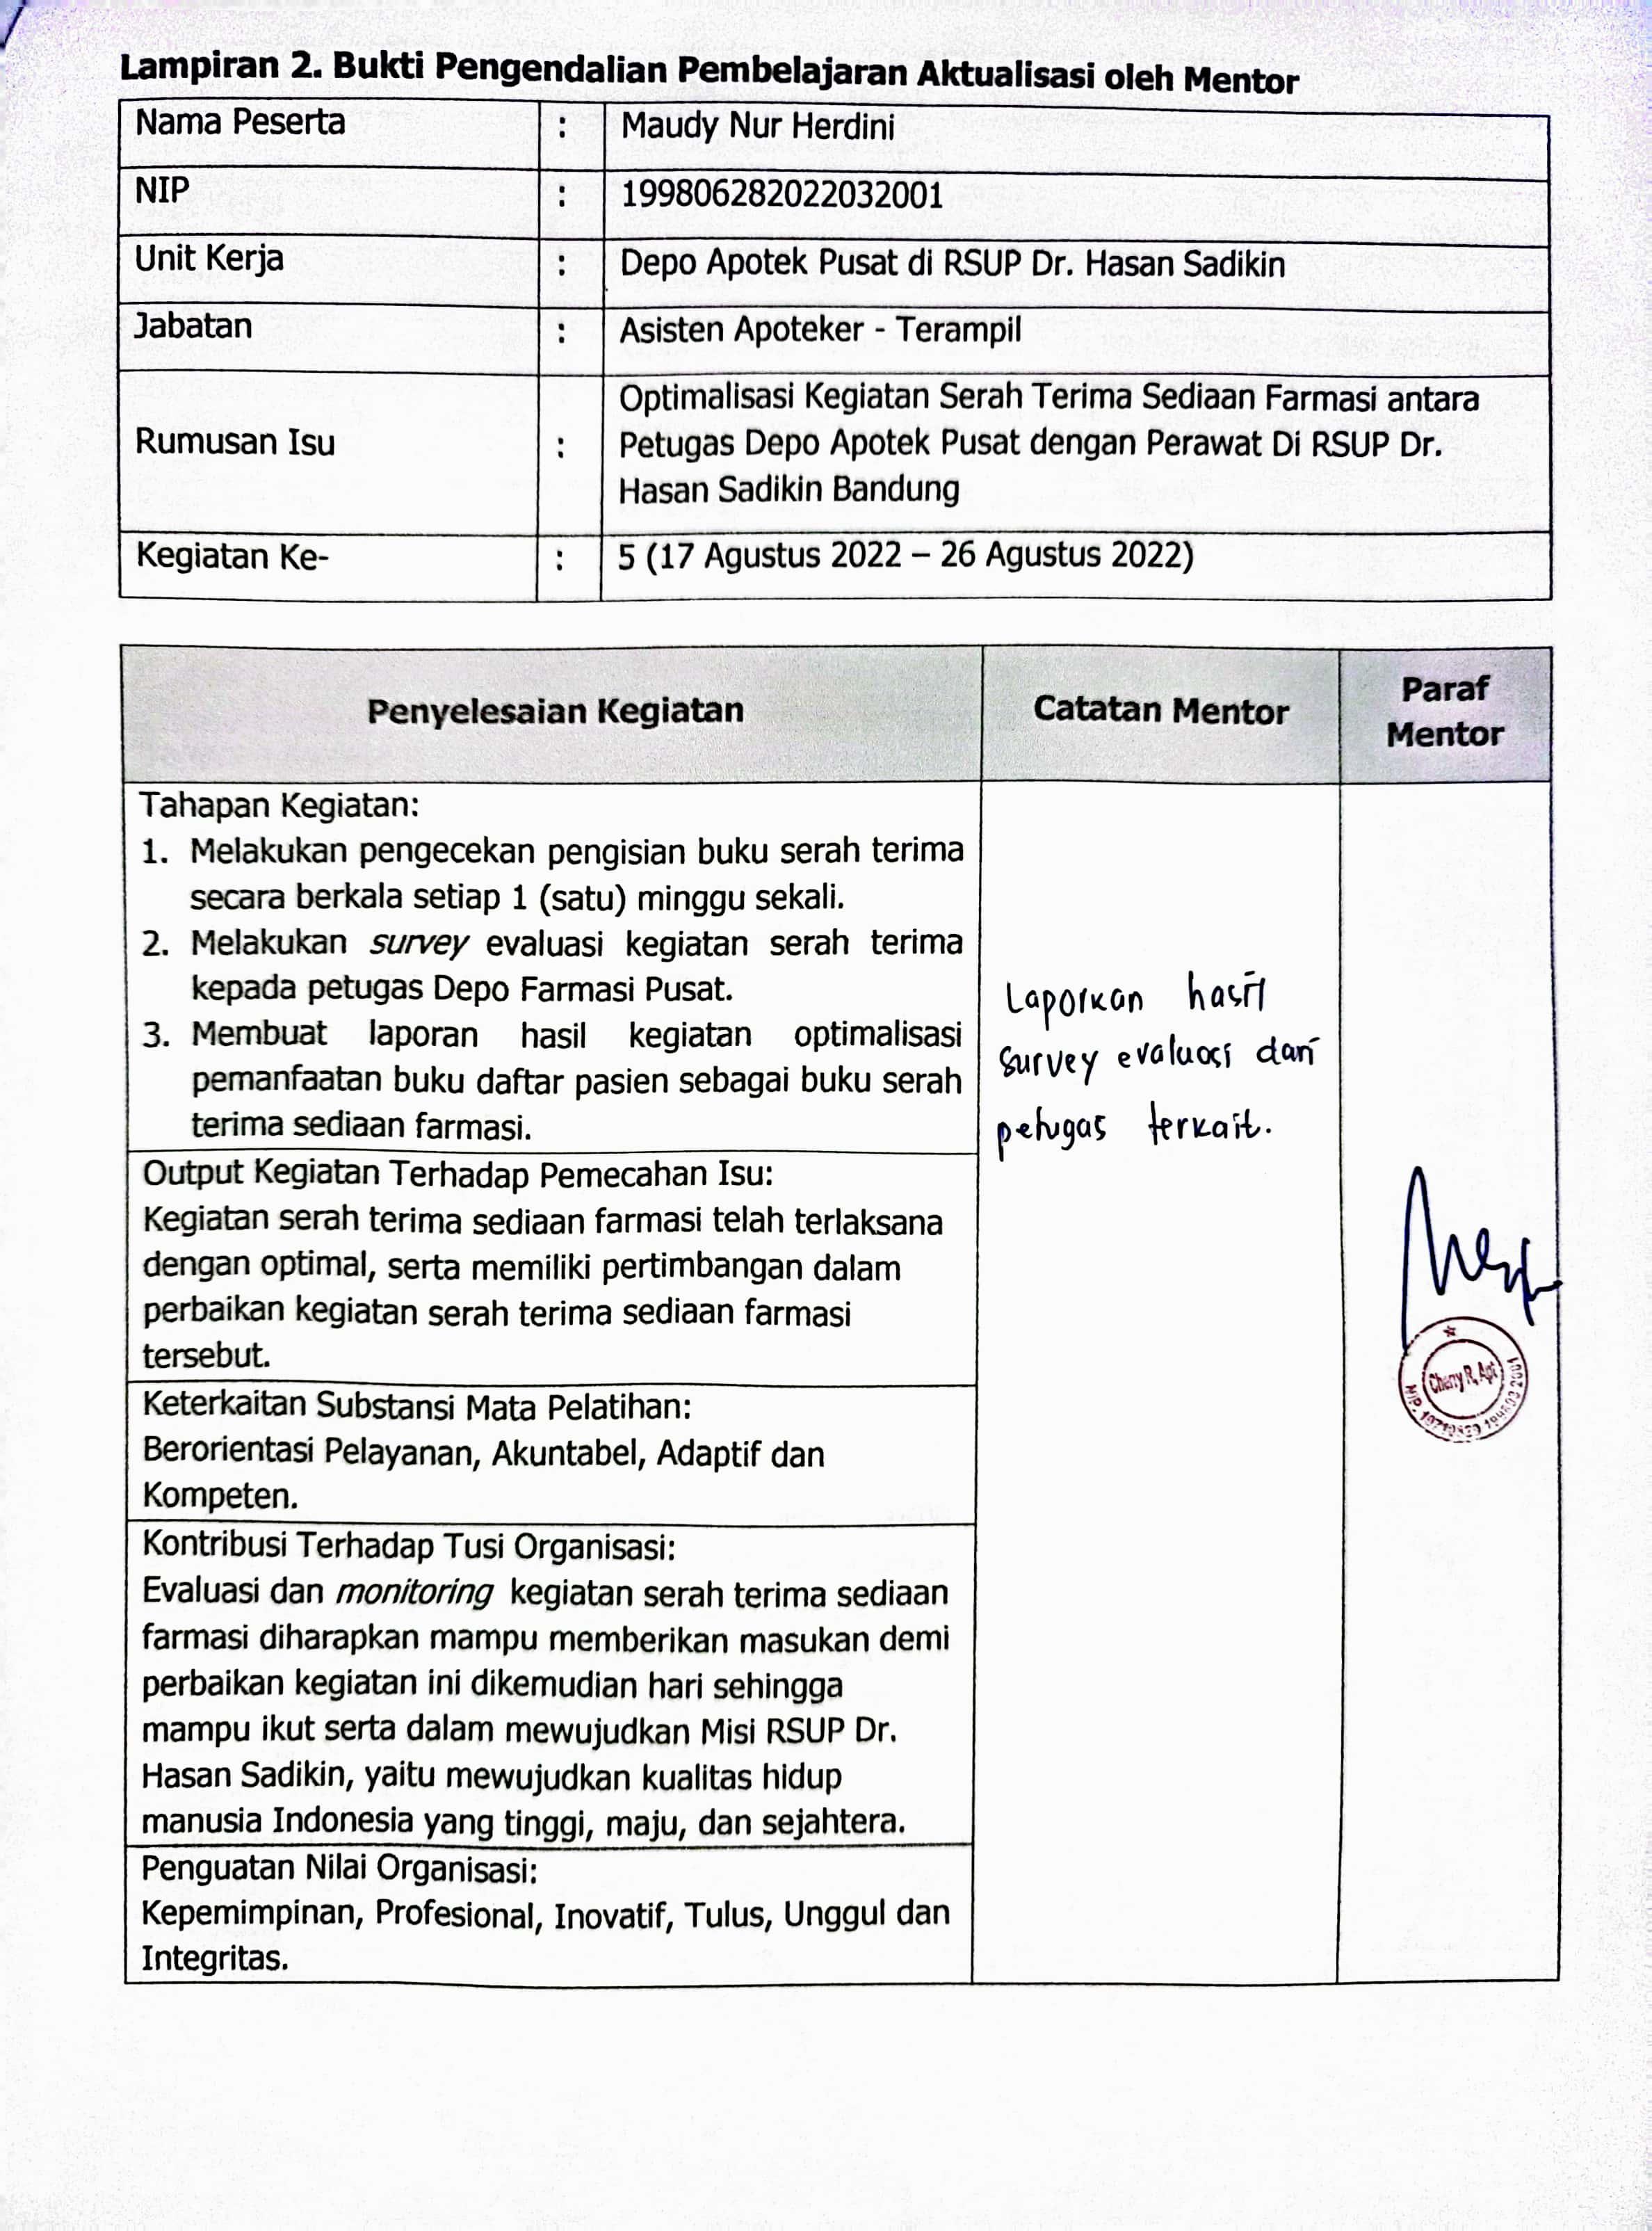 Lampiran 2. Bukti Pengendalian Pembelajaran Aktualisasi oleh Mentor
Nama Peserta : Maudy Nur Herdini
NIP : 199806282022032001
Unit Kerja : Depo Apotek Pusat di RSUP Dr. Hasan Sadikin
Jabatan : Asisten Apoteker - Terampil
Rumusan Isu : Optimalisasi Kegiatan Serah Terima Sediaan Farmasi antara
Petugas Depo Apotek Pusat dengan Perawat Di RSUP Dr.
Hasan Sadikin Bandung
Kegiatan Ke- : 5 (17 Agustus 2022 – 26 Agustus 2022)
Penyelesaian Kegiatan
Catatan Mentor
Paraf
Mentor
Tahapan Kegiatan:
1. Melakukan pengecekan pengisian buku serah terima
secara berkala setiap 1 (satu) minggu sekali.
2. Melakukan survey evaluasi kegiatan serah terima
kepada petugas Depo Farmasi Pusat.
3. Membuat laporan hasil kegiatan optimalisasi
pemanfaatan buku daftar pasien sebagai buku serah
terima sediaan farmasi.
Output Kegiatan Terhadap Pemecahan Isu:
Kegiatan serah terima sediaan farmasi telah terlaksana
dengan optimal, serta memiliki pertimbangan dalam
perbaikan kegiatan serah terima sediaan farmasi
tersebut.
Keterkaitan Substansi Mata Pelatihan:
Berorientasi Pelayanan, Akuntabel, Adaptif dan
Kompeten.
Kontribusi Terhadap Tusi Organisasi:
Evaluasi dan monitoring kegiatan serah terima sediaan
farmasi diharapkan mampu memberikan masukan demi
perbaikan kegiatan ini dikemudian hari sehingga
mampu ikut serta dalam mewujudkan Misi RSUP Dr.
Hasan Sadikin, yaitu mewujudkan kualitas hidup
manusia Indonesia yang tinggi, maju, dan sejahtera.
Penguatan Nilai Organisasi:
Kepemimpinan, Profesional, Inovatif, Tulus, Unggul dan
Integritas.
Laporkan hasil
survey evaluasi dari
petugas terkait.
R, Apt
NIP.